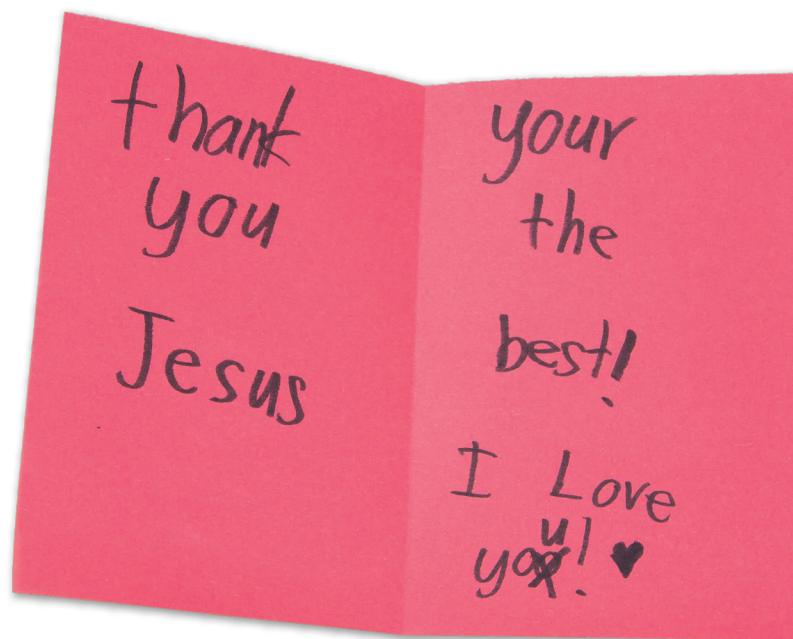 thank
you
Jesus
your
the
best!
I Love
you! ♥